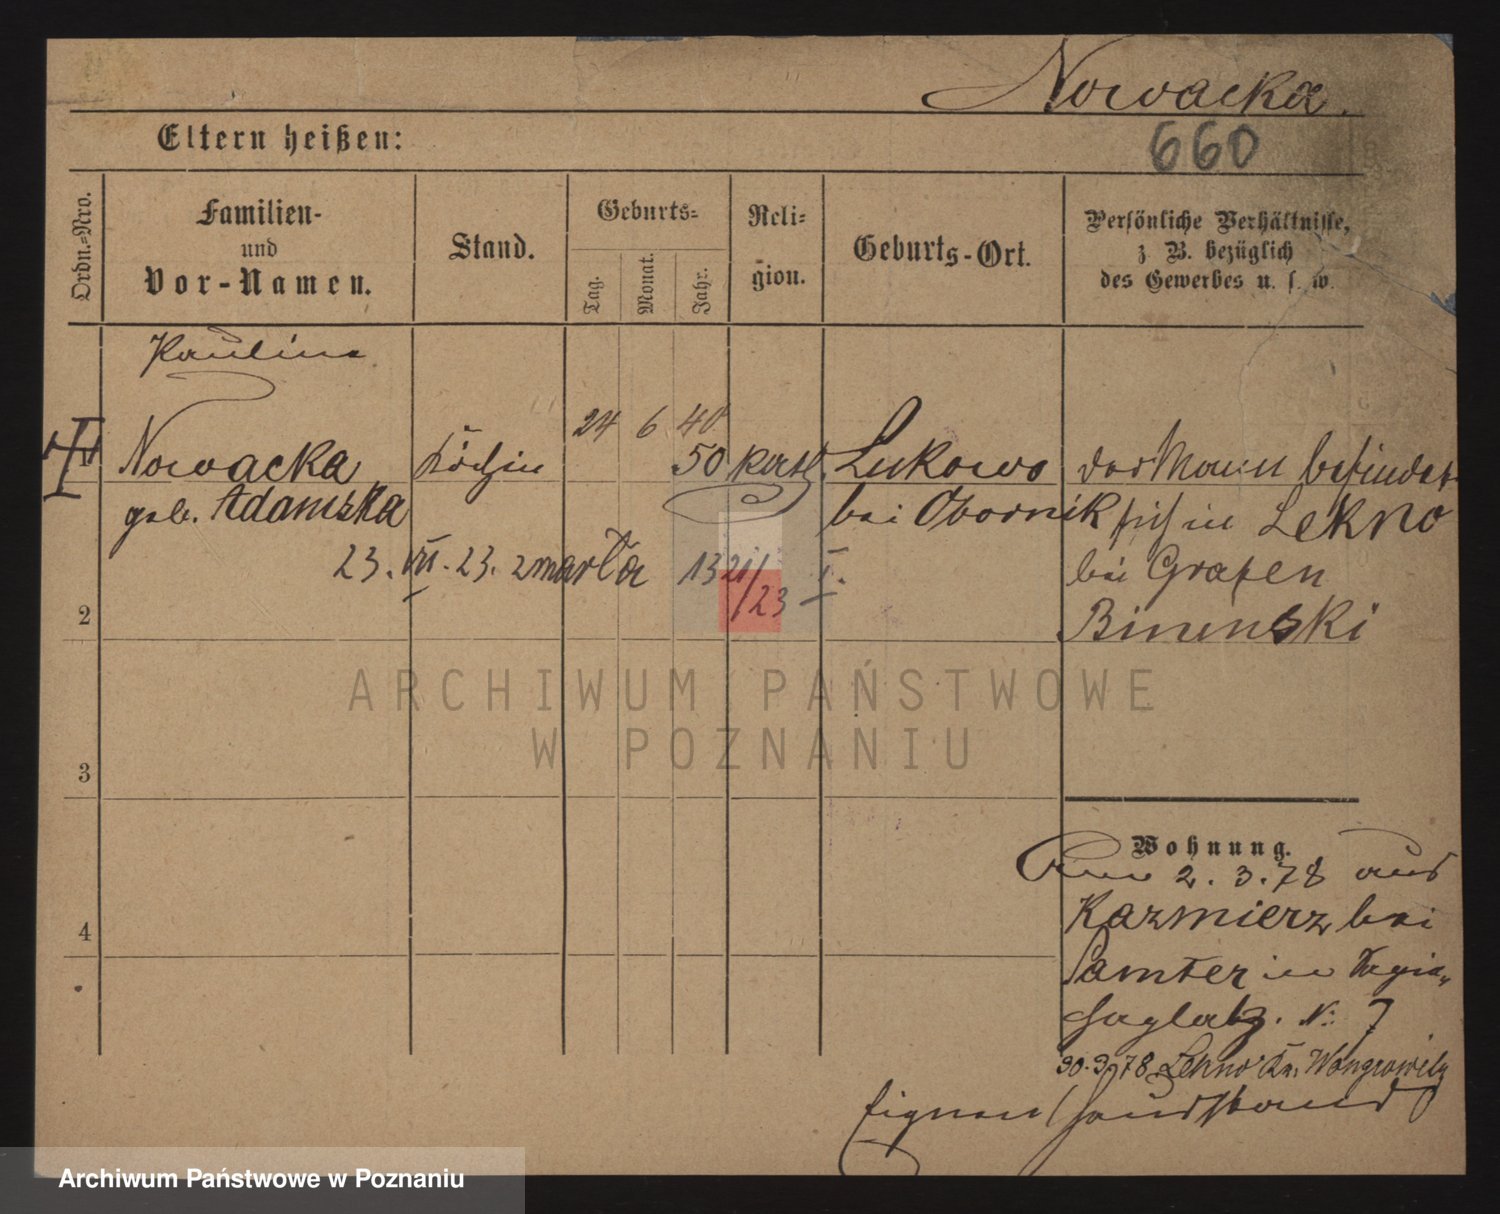 Nowacka.
660
Eltern heißen:
Ordn.=Nro.
Familien-
und
Vor-Namen.
Stand.
Geburts=
Tag.
Monat.
Jahr.
Reli=
gion.
Geburts-Ort.
Persönliche Verhältnisse,
z. B. bezüglich
des Gewerbes u. s. w.
Paulina
24 6 40
1 Nowacka Köchin 50 kath. Lukowo der Mann befindet
geb. Adamska bei Obornik sich in Lekno
23. VII. 23. zmarła 1321/23 I. bei Grafen
2 Bninski
3
4
Wohnung.
2. 3. 78 aus
Kazmierz bei
Samter in
No 7
30.3.78 Lekno Kr. Wongrowitz
Eignen Hausstand
ARCHIWUM PAŃSTWOWE
W POZNANIU
Archiwum Państwowe w Poznaniu